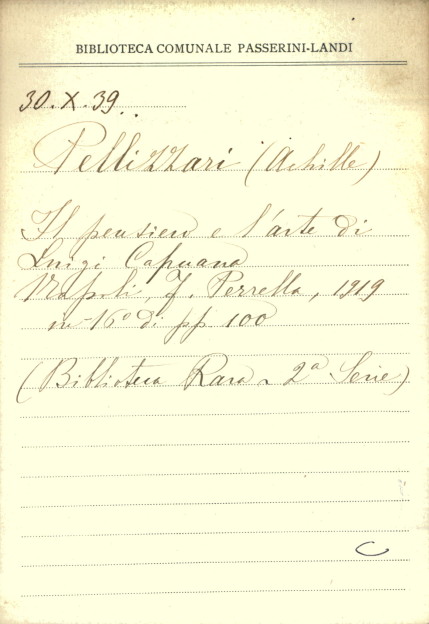 BIBLIOTECA COMUNALE PASSERINI-LANDI
30.X.39..
Pellizzari (Achille)
Il pensiero e l'arte di
Luigi Capuana
Napoli, F. Perrella, 1919
in-16º di pp 100
(Biblioteca Rara - 2ª Serie)